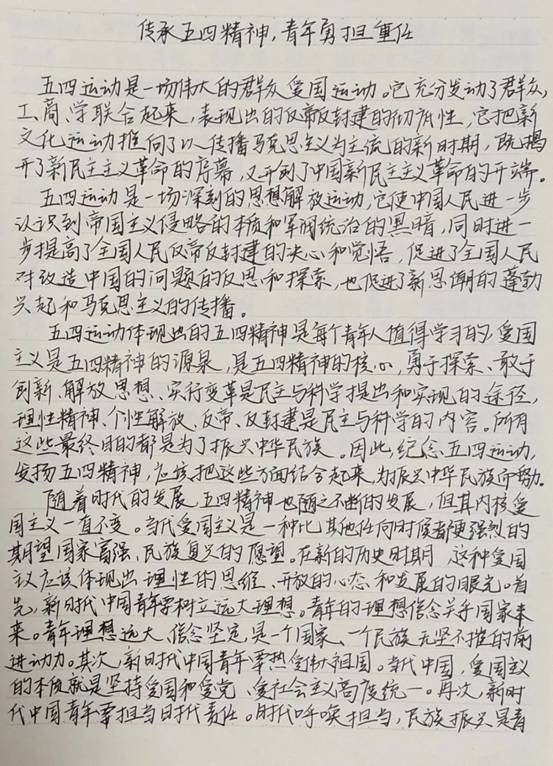 传承五四精神,青年勇担重任
五四运动是一场伟大的群众爱国运动。它充分发动了群众,
工、商、学联合起来,表现出的反帝反封建的彻底性,它把新
文化运动推向了以传播马克思主义为主流的新时期,既揭
开了新民主主义革命的序幕,又开创了中国新民主主义革命的开端。
五四运动是一场深刻的思想解放运动,它使中国人民进一步
认识到帝国主义侵略的本质和军阀统治的黑暗,同时进一
步提高了全国人民反帝反封建的决心和觉悟,促进了全国人民
对改造中国的问题的反思和探索,也促进了新思潮的蓬勃
兴起和马克思主义的传播。
五四运动体现出的五四精神是每个青年人值得学习的,爱国
主义是五四精神的源泉,是五四精神的核心,勇于探索、敢于
创新、解放思想、实行变革是民主与科学提出和实现的途径,
理性精神、个性解放、反帝、反封建是民主与科学的内容。所有
这些最终目的都是为了振兴中华民族。因此,纪念五四运动,
发扬五四精神,应该把这些方面结合起来,为振兴中华民族而努力。
随着时代的发展,五四精神也随之不断的发展,但其内核爱
国主义一直不变。当代爱国主义是一种比其他任何时候都更强烈的
期望国家富强、民族复兴的愿望。在新的历史时期,这种爱国
主义应该体现出理性的思维、开放的心态和发展的眼光。首
先,新时代中国青年要树立远大理想。青年的理想信念关乎国家未
来。青年理想远大、信念坚定,是一个国家、一个民族无坚不摧的前
进动力。其次,新时代中国青年要热爱伟大祖国。当代中国,爱国主义
的本质就是坚持爱国和爱党、爱社会主义高度统一。再次,新时
代中国青年要担当时代责任。时代呼唤担当,民族振兴是青